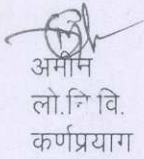 अमीन
लो.नि वि.
कर्णप्रयाग